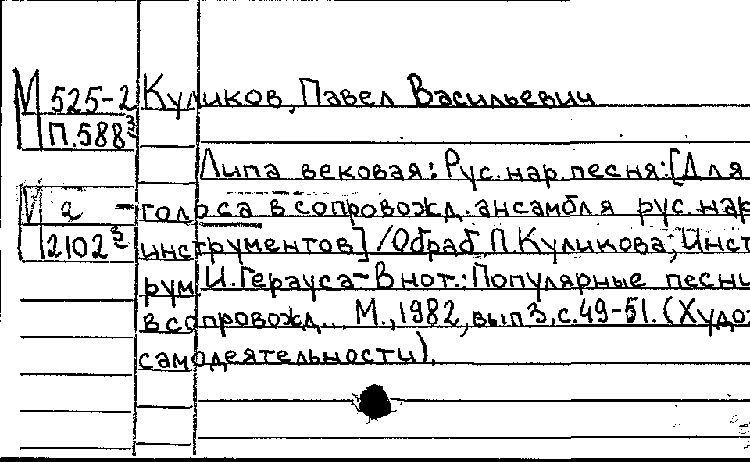 М 525-2 Куликов, Павел Васильевич
П.588³
Липа вековая: Рус. нар. песня: [Для
М а - голоса в сопровожд. ансамбля рус. нар
2102³ инструментов] / Обраб П. Куликова; Инст
рум И. Герауса - В нот.: Популярные песни
в сопровожд... М., 1982, вып 3, с. 49-51. (Худож
самодеятельности).